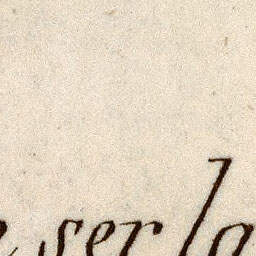 e ser la